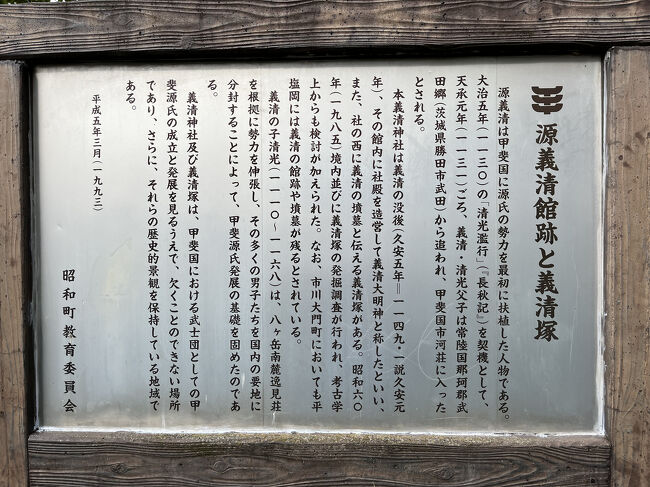 源義清館跡と義清塚
源義清は甲斐国に源氏の勢力を最初に扶植した人物である。
大治五年(一一三〇)の「清光濫行」(『長秋記』)を契機として、
天承元年(一一三一)ごろ、義清・清光父子は常陸国那珂郡武
田郷(茨城県勝田市武田)から追われ、甲斐国市河荘に入った
とされる。
本義清神社は義清の没後(久安五年―一一四九・一説久安元
年)、その館内に社殿を造営して義清大明神と称したといい、
また、社の西に義清の墳墓と伝える義清塚がある。昭和六〇
年(一九八五)境内並びに義清塚の発掘調査が行われ、考古学
上からも検討が加えられた。なお、市川大門町においても平
塩岡には義清の館跡や墳墓が残るとされている。
義清の子清光(一一一〇~一一六八)は、八ヶ岳南麓逸見荘
を根拠に勢力を伸張し、その多くの男子たちを国内の要地に
分封することによって、甲斐源氏発展の基礎を固めたのであ
る。
義清神社及び義清塚は、甲斐国における武士団としての甲
斐源氏の成立と発展を見るうえで、欠くことのできない場所
であり、さらに、それらの歴史的景観を保持している地域で
ある。
平成五年三月(一九九三)
昭和町教育委員会